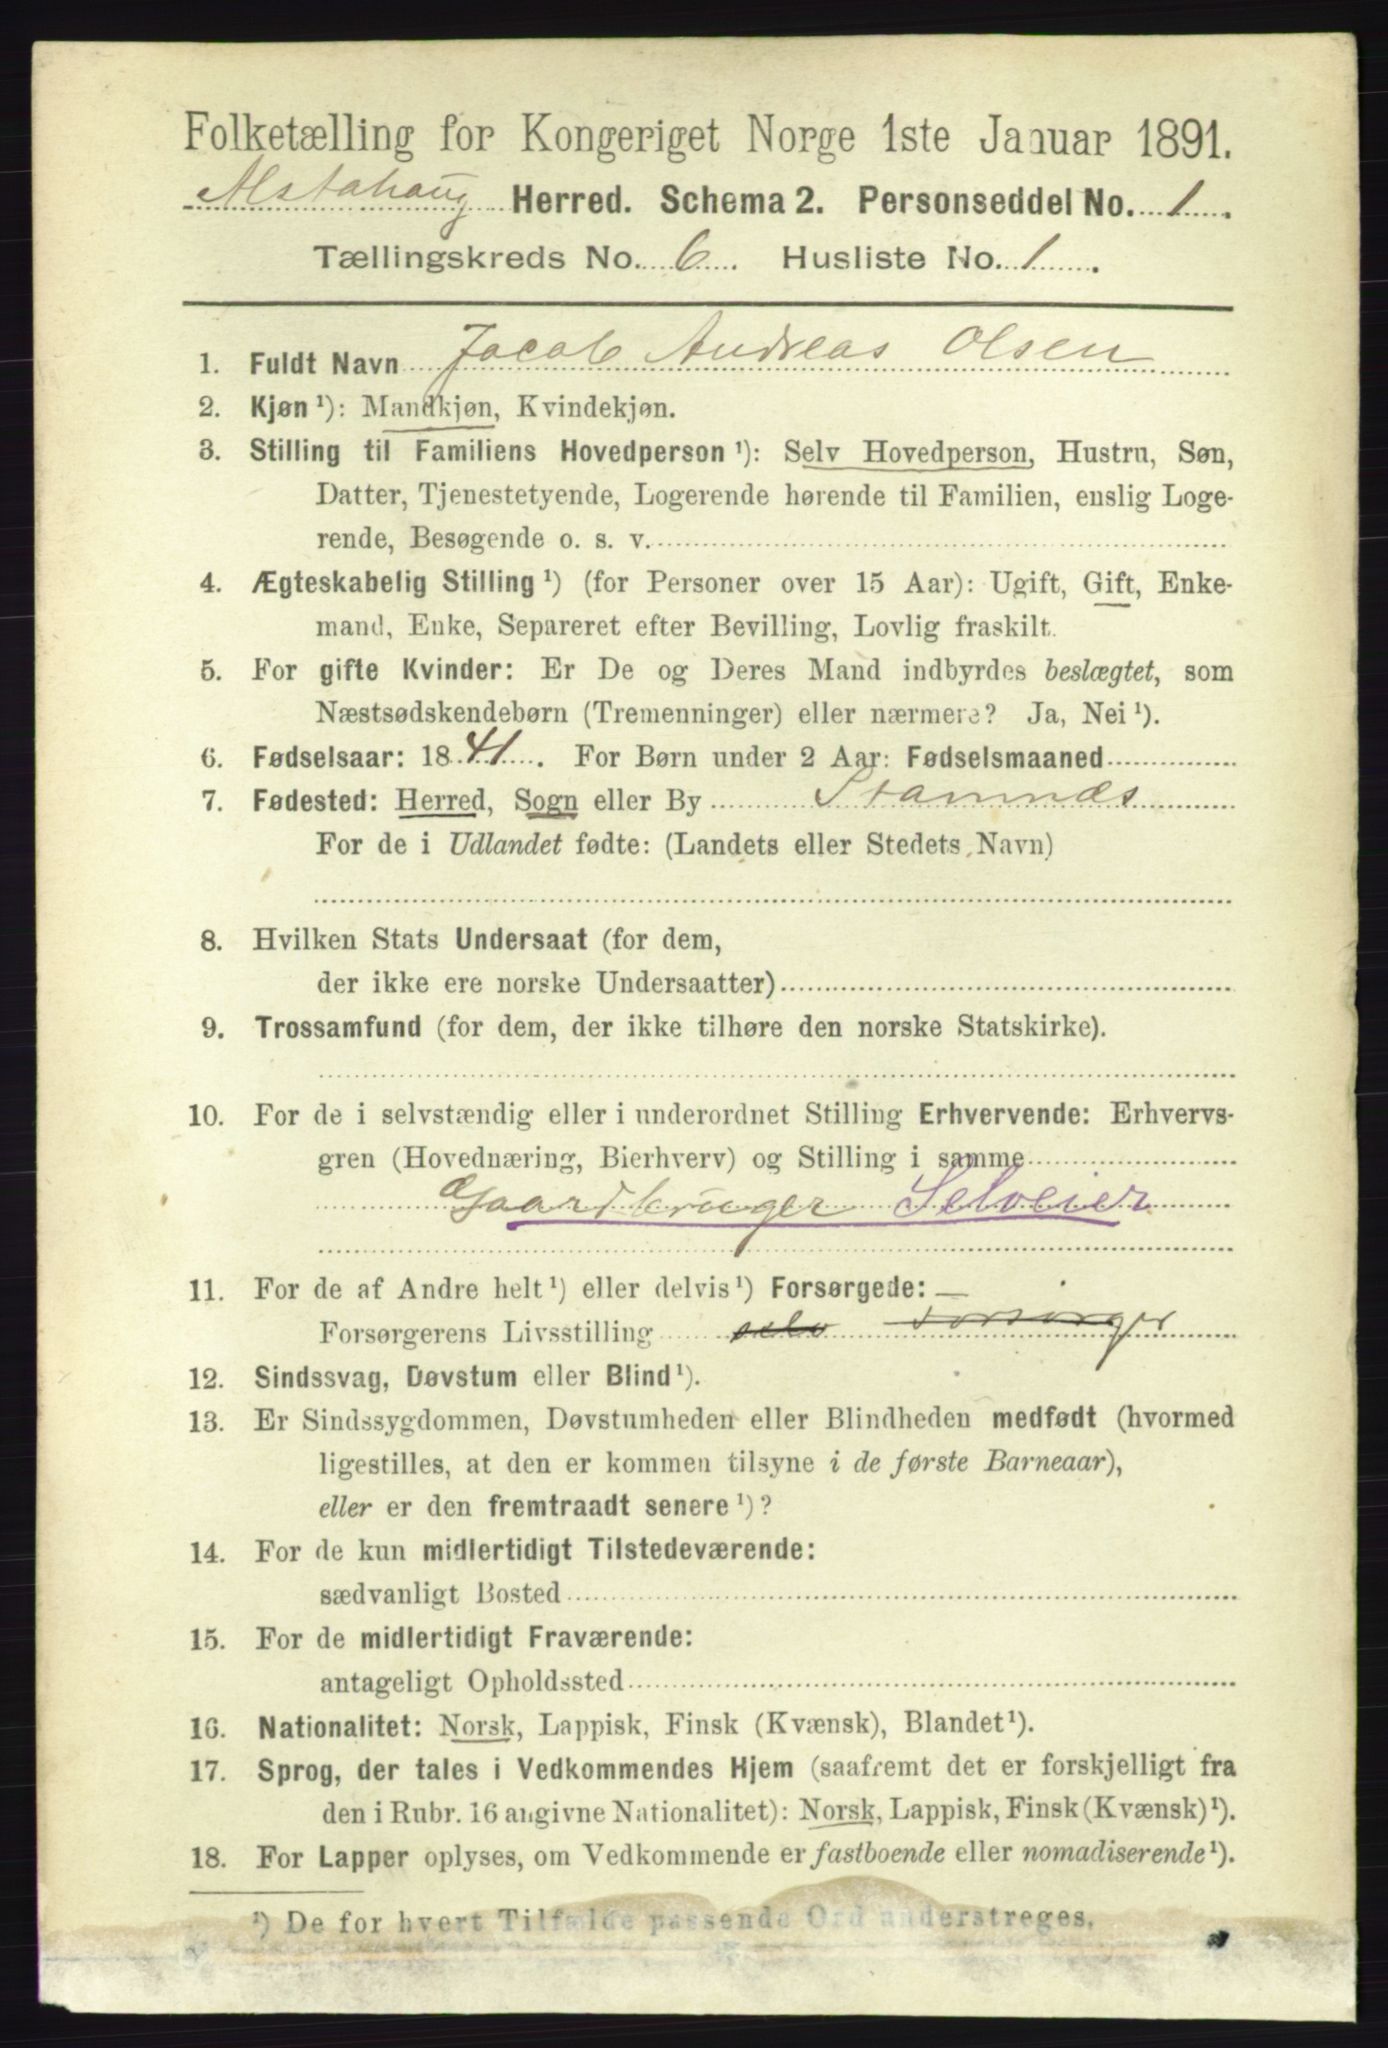 Folketælling for Kongeriget Norge 1ste Januar 1891.
Alstahaug Herred. Schema 2. Personseddel No. 1.
Tællingskreds No. 6. Husliste No. 1.
1. Fuldt Navn Jacob Andreas Olsen
2. Kjøn ¹): Mandkjøn, Kvindekjøn.
3. Stilling til Familiens Hovedperson ¹): Selv Hovedperson, Hustru, Søn,
Datter, Tjenestetyende, Logerende hørende til Familien, enslig Loge-
rende, Besøgende o. s. v.
4. Ægteskabelig Stilling ¹) (for Personer over 15 Aar): Ugift, Gift, Enke-
mand, Enke, Separeret efter Bevilling, Lovlig fraskilt.
5. For gifte Kvinder: Er De og Deres Mand indbyrdes beslægtet, som
Næstsødskendebørn (Tremenninger) eller nærmere? Ja, Nei ¹).
6. Fødselsaar: 1841. For Børn under 2 Aar: Fødselsmaaned
7. Fødested: Herred, Sogn eller By Stamnæs
For de i Udlandet fødte: (Landets eller Stedets Navn)
8. Hvilken Stats Undersaat (for dem,
der ikke ere norske Undersaatter)
9. Trossamfund (for dem, der ikke tilhøre den norske Statskirke).
10. For de i selvstændig eller i underordnet Stilling Erhvervende: Erhvervs-
gren (Hovednæring, Bierhverv) og Stilling i samme
Gaardbruger Selveier
11. For de af Andre helt ¹) eller delvis ¹) Forsørgede: —
Forsørgerens Livsstilling selv forsørger
12. Sindssvag, Døvstum eller Blind ¹).
13. Er Sindssygdommen, Døvstumheden eller Blindheden medfødt (hvormed
ligestilles, at den er kommen tilsyne i de første Barneaar),
eller er den fremtraadt senere ¹)?
14. For de kun midlertidigt Tilstedeværende:
sædvanligt Bosted
15. For de midlertidigt Fraværende:
antageligt Opholdssted
16. Nationalitet: Norsk, Lappisk, Finsk (Kvænsk), Blandet ¹).
17. Sprog, der tales i Vedkommendes Hjem (saafremt det er forskjelligt fra
den i Rubr. 16 angivne Nationalitet): Norsk, Lappisk, Finsk (Kvænsk) ¹).
18. For Lapper oplyses, om Vedkommende er fastboende eller nomadiserende ¹).
¹) De for hvert Tilfælde passende Ord understreges.